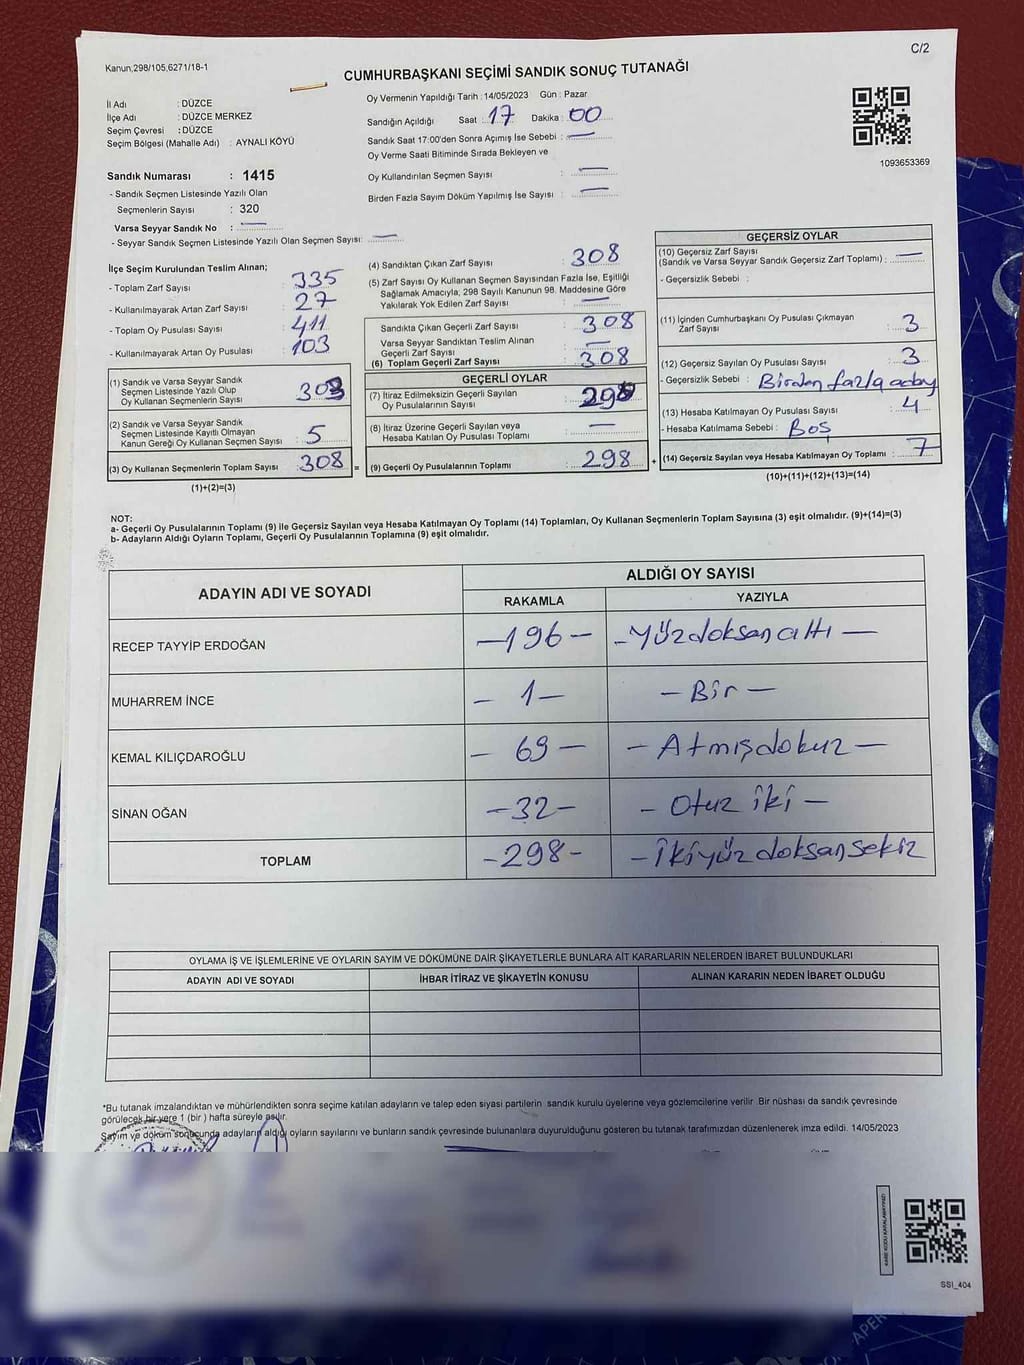 C/2
Kanun,298/105,6271/18-1
CUMHURBAŞKANI SEÇİMİ SANDIK SONUÇ TUTANAĞI
İl Adı : DÜZCE
İlçe Adı : DÜZCE MERKEZ
Seçim Çevresi : DÜZCE
Seçim Bölgesi (Mahalle Adı) : AYNALI KÖYÜ
Sandık Numarası : 1415
- Sandık Seçmen Listesinde Yazılı Olan
Seçmenlerin Sayısı : 320
Varsa Seyyar Sandık No : —
- Seyyar Sandık Seçmen Listesinde Yazılı Olan Seçmen Sayısı: —
Oy Vermenin Yapıldığı Tarih : 14/05/2023 Gün : Pazar
Sandığın Açıldığı Saat : 17 Dakika : 00
Sandık Saat 17:00'den Sonra Açımış İse Sebebi : —
Oy Verme Saati Bitiminde Sırada Bekleyen ve
Oy Kullandırılan Seçmen Sayısı : —
Birden Fazla Sayım Döküm Yapılmış İse Sayısı : —
1093653369
İlçe Seçim Kurulundan Teslim Alınan;
- Toplam Zarf Sayısı : 335
- Kullanılmayarak Artan Zarf Sayısı : 27
- Toplam Oy Pusulası Sayısı : 411
- Kullanılmayarak Artan Oy Pusulası : 103
(1) Sandık ve Varsa Seyyar Sandık
Seçmen Listesinde Yazılı Olup
Oy Kullanan Seçmenlerin Sayısı : 303
(2) Sandık ve Varsa Seyyar Sandık
Seçmen Listesinde Kayıtlı Olmayan
Kanun Gereği Oy Kullanan Seçmen Sayısı : 5
(3) Oy Kullanan Seçmenlerin Toplam Sayısı : 308 =
(1)+(2)=(3)
(4) Sandıktan Çıkan Zarf Sayısı : 308
(5) Zarf Sayısı Oy Kullanan Seçmen Sayısından Fazla İse, Eşitliği
Sağlamak Amacıyla; 298 Sayılı Kanunun 98. Maddesine Göre
Yakılarak Yok Edilen Zarf Sayısı : —
Sandıkta Çıkan Geçerli Zarf Sayısı : 308
Varsa Seyyar Sandıktan Teslim Alınan
Geçerli Zarf Sayısı : —
(6) Toplam Geçerli Zarf Sayısı : 308
GEÇERLİ OYLAR
(7) İtiraz Edilmeksizin Geçerli Sayılan
Oy Pusulalarının Sayısı : 298
(8) İtiraz Üzerine Geçerli Sayılan veya
Hesaba Katılan Oy Pusulası Toplamı : —
(9) Geçerli Oy Pusulalarının Toplamı : 298 +
GEÇERSİZ OYLAR
(10) Geçersiz Zarf Sayısı
(Sandık ve Varsa Seyyar Sandık Geçersiz Zarf Toplamı) : —
- Geçersizlik Sebebi :
(11) İçinden Cumhurbaşkanı Oy Pusulası Çıkmayan
Zarf Sayısı : 3
(12) Geçersiz Sayılan Oy Pusulası Sayısı : 3
- Geçersizlik Sebebi : Birden fazla aday
(13) Hesaba Katılmayan Oy Pusulası Sayısı : 4
- Hesaba Katılmama Sebebi : Boş
(14) Geçersiz Sayılan veya Hesaba Katılmayan Oy Toplamı : 7
(10)+(11)+(12)+(13)=(14)
NOT:
a- Geçerli Oy Pusulalarının Toplamı (9) ile Geçersiz Sayılan veya Hesaba Katılmayan Oy Toplamı (14) Toplamları, Oy Kullanan Seçmenlerin Toplam Sayısına (3) eşit olmalıdır. (9)+(14)=(3)
b- Adayların Aldığı Oyların Toplamı, Geçerli Oy Pusulalarının Toplamına (9) eşit olmalıdır.
ADAYIN ADI VE SOYADI ALDIĞI OY SAYISI
RAKAMLA YAZIYLA
RECEP TAYYİP ERDOĞAN —196— —Yüzdoksanaltı—
MUHARREM İNCE —1— —Bir—
KEMAL KILIÇDAROĞLU —69— —Atmışdokuz—
SİNAN OĞAN —32— —Otuz iki—
TOPLAM —298— —İkiyüzdoksansekiz
OYLAMA İŞ VE İŞLEMLERİNE VE OYLARIN SAYIM VE DÖKÜMÜNE DAİR ŞİKAYETLERLE BUNLARA AİT KARARLARIN NELERDEN İBARET BULUNDUKLARI
ADAYIN ADI VE SOYADI İHBAR İTİRAZ VE ŞİKAYETİN KONUSU ALINAN KARARIN NEDEN İBARET OLDUĞU
*Bu tutanak imzalandıktan ve mühürlendikten sonra seçime katılan adayların ve talep eden siyasi partilerin sandık kurulu üyelerine veya gözlemcilerine verilir .Bir nüshası da sandık çevresinde
görülecek bir yere 1 (bir ) hafta süreyle asılır.
Sayım ve döküm sonucunda adayların aldığı oyların sayılarını ve bunların sandık çevresinde bulunanlara duyurulduğunu gösteren bu tutanak tarafımızdan düzenlenerek imza edildi. 14/05/2023
KARE KODU KARALAMAYINIZ!
SSI_404